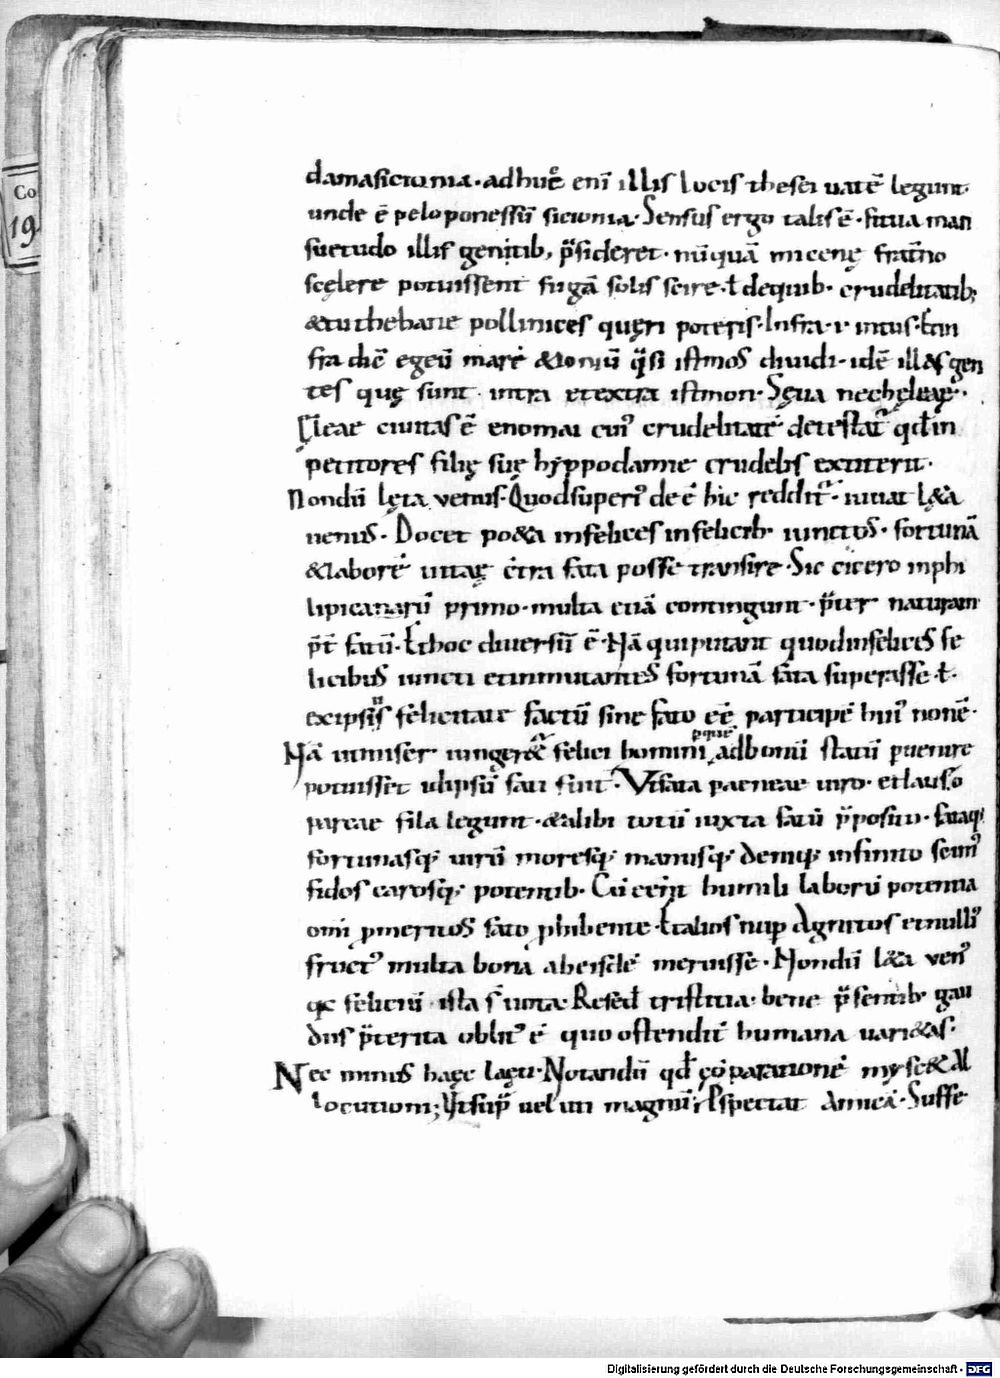 Co
19
damasictonia. adhuc̄ eni ̄ illis locis thesei uatē legunt.
unde ē peloponessū sicionia. Sensus ergo talis ē. si tua man
suetudo illis gentib, p̄sideret. nūquā micenę fratn̄o
scęlere potuissent fugā solis scire. ł dequib. crudelitatib;
&tu thebane pollinices quęri poteris. Infra. i. intus. ł in
fra dic̄ egeū mare &ioniū q̄si istmos diuidi. idē illas gen
tes quę sunt intra et extra istmon. Sęua nec hęleaę.
Eleae ciuitas ē enomai cui' crudelitatē detestat' qd̄ in
petitores filię suę hyppodamie crudelis extiterit.
Nondū lęta uenus. Quod superi' de ē hic reddit'. iuuat l&a
uenus. Docet po&a infelices infelicib. iunctos. fortunā
&laborē uitaę c̄tra fata posse transire. Sic cicero in phi
lipicanarū primo. multa etiā contingunt. p̄ter naturam
p̄t̄ fatū. & hoc diuersū ē. Nā qui putant quod infelices fe
licibus iuncti et inmutantes fortunā fata superasse. ł.
ex ipsiis felicitate factū sine fato eē participē hui' non ē.
Nā ut miser iunger& felici homini pque ad bonū statū puenire
potuisset ut ipsū fati sint. Vt fata paeneae uiro. et laus o
parcae fila legunt. &alibi totū iuxta fatū p̄positū. fataq;
fortunasq; uirū moresq; manusq; Deniq; infinito scim'
fidos carosq; potentib. Cū ērint humili laborū potentia
omi pmeritos fato phibente. & alios nup Agnitos et nulli'
fruct' multa bona ab eisdē meruisse. Nondū l&a uen'
qc feliciū ista s̄ uota. Res ē d̄ tristitia. bene p̄sentib. gau
diis p̄terita oblit' ē quo ostendit humana uari&as.
Nec minus haęc laęti. Notandū qd̄ cōparationē mysc& Al
locutioni; Vt sup̄ uelut magnū. Respectat Amicā. Suffe
Digitalisierung gefördert durch die Deutsche Forschungsgemeinschaft - DFG